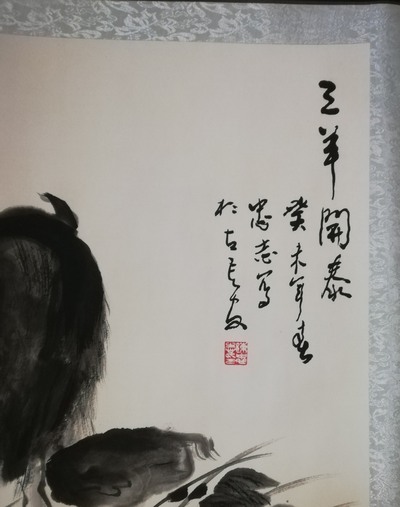 三羊開泰
癸未年春
忠志写
於古長安